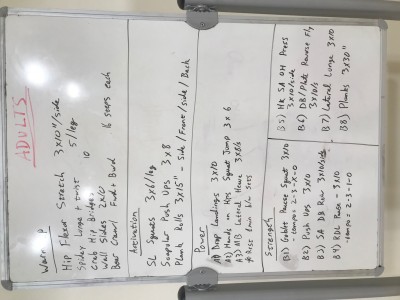 ADULTS
Warm up
Hip Flexor Stretch 3x10"/side
Spidey Lunge + Twist 5/leg
Crab Hip Bridges 10
Wall Slides 2x10
Bear Crawl Fwd + Bwd 16 steps each
Activation
SL Squats 3x6/leg
Scapular Push Ups 3x8
Plank Rolls 3x15" - Side/Front/Side/Back
Power
A1) Drop Landings 3x10
A2) Hands on Hips Squat Jump 3x6
A3) MB Lateral Heave 3x6/s
Strength
B1) Goblet Pause Squat 3x10
-tempo = 2-3-X-0
B2) Push Ups 3x10
B3) SA DB Row 3x10/side
B4) RDL Pause - 3x10
-tempo = 2-3-1-0
B5) HK SA OH Press
3x10/side
B6) DB/Plate Reverse Fly
3x10/s
B7) Lateral Lunge 3x10
B8) Planks 3x30"